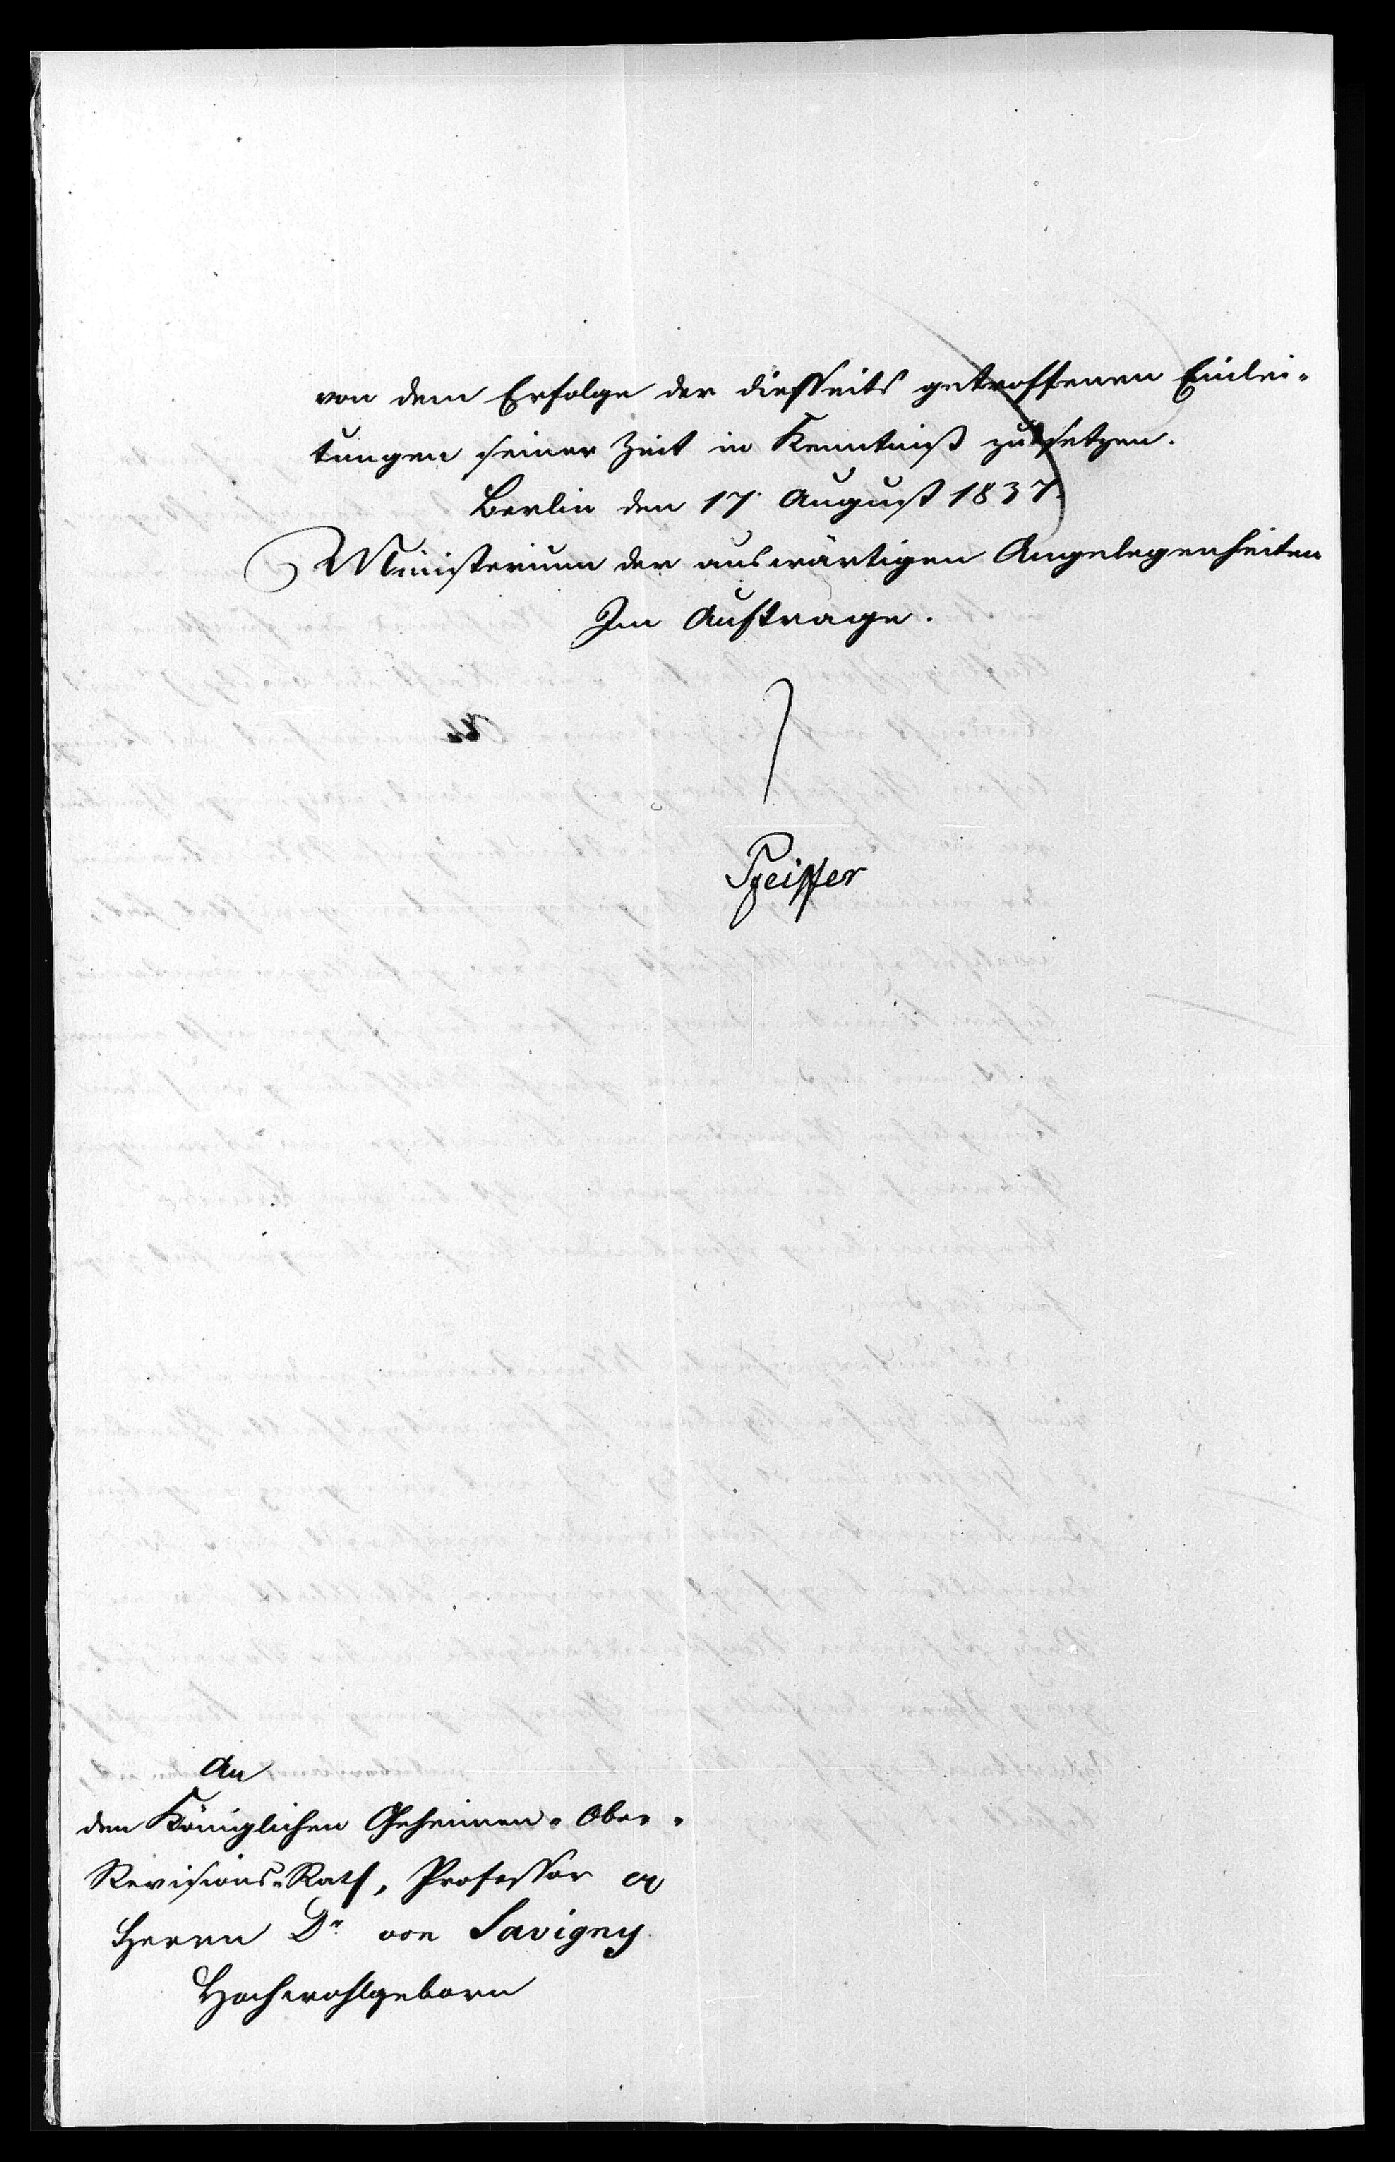 von dem Erfolge der diesseits getroffenen Einlei-
tungen seiner Zeit in Kenntniß zu setzen.
Berlin den 17. August 1837.
Ministerium der auswärtigen Angelegenheiten
Im Auftrage.
Pfeiffer
An
den Königlichen Geheimen-Ober-
Revisions-Rath, Professor
Herrn Dr. von Savigny
Hochwohlgeborn